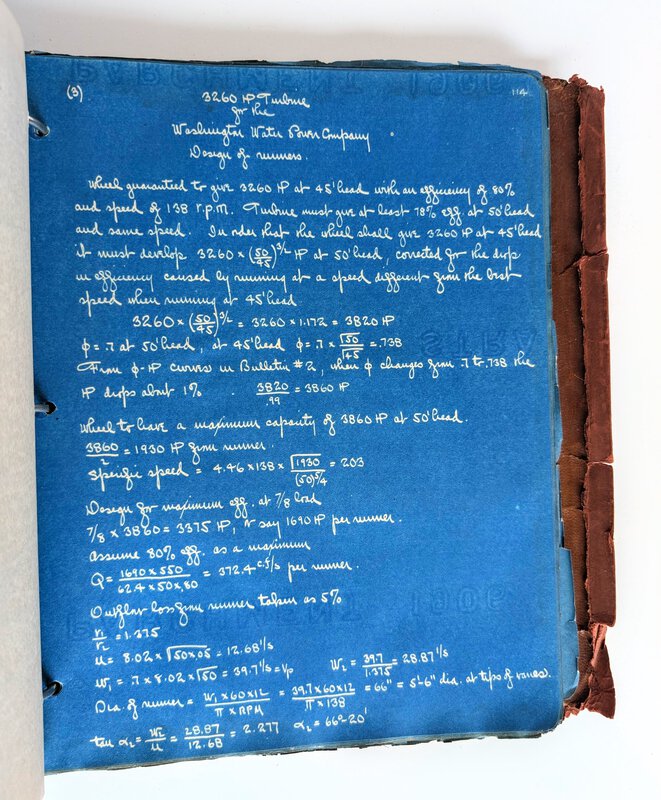 (3)
114
3260 HP Turbine
for the
Washington Water Power Company
Design of runners.
Wheel guaranteed to give 3260 HP at 45' head with an efficiency of 80%
and speed of 138 r.p.m. Turbine must give at least 78% eff. at 50' head
and same speed. In order that the wheel shall give 3260 HP at 45' head
it must develop 3260 × (50/45)^3/2 HP at 50' head, corrected for the drop
in efficiency caused by running at a speed different from the best
speed when running at 45' head.
3260 × (50/45)^3/2 = 3260 × 1.172 = 3820 HP
φ = .7 at 50' head, at 45' head φ = .7 × √50/√45 = .738
From φ-HP curves in Bulletin #2, when φ changes from .7 to .738 the
HP drops about 1%. 3820/.99 = 3860 HP
Wheel to have a maximum capacity of 3860 HP at 50' head.
3860/2 = 1930 HP from runner.
Specific speed = 4.46 × 138 × √1930/(50)^5/4 = 203
Design for maximum eff. at 7/8 load
7/8 × 3860 = 3375 HP, or say 1690 HP per runner.
Assume 80% eff. as a maximum
Q = 1690 × 550/62.4 × 50 × .80 = 372.4 c.f/s per runner.
Outflow loss from runner taken as 5%
r₁/r₂ = 1.375
u = 8.02 × √50×.05 = 12.68 '/s
w₁ = .7 × 8.02 × √50 = 39.7 '/s = Vp w₂ = 39.7/1.375 = 28.87 '/s
Dia. of runner = w₁ × 60 × 12/π × RPM = 39.7 × 60 × 12/π × 138 = 66" = 5'-6" dia. at tips of vanes.
tan α₂ = w₂/u = 28.87/12.68 = 2.277 α₂ = 66°-20'